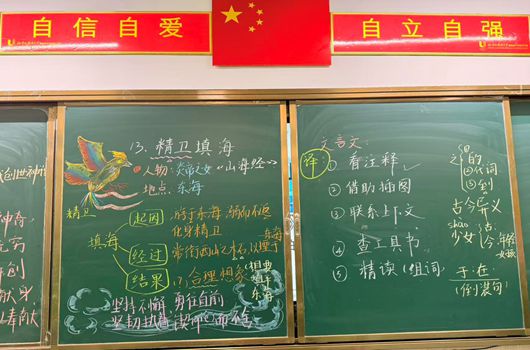 自信自爱
自立自强
创世神话
神奇
创
献身
13.精卫填海
人物：炎帝之女《山海经》
地点：东海
精卫
填海
起因
游于东海，溺而不返
化身精卫
经过
常衔西山之木石，以堙于
东海
结果
(?)合理想象
坚持不懈 勇往直前
坚韧执着
文言文：
译：
①看注释
②借助插图
③联系上下文
④查工具书
⑤精读(组词)
之
①的
②代词
③到
古今异义
shào
少女
古
今：年轻
女孩
于：在
(倒装句)